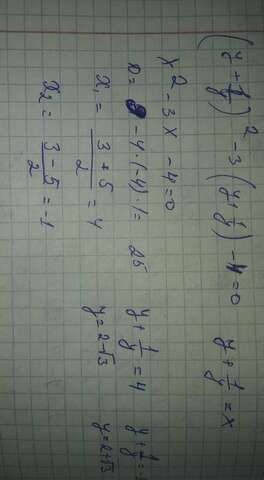 (y + 1/y)² - 3(y + 1/y) - 4 = 0    y + 1/y = x
x² - 3x - 4 = 0
D = 9 - 4·(-4)·1 = 25    y + 1/y = 4    y + 1/y =
x₁ = (3 + 5)/2 = 4    y = 2 - √3    y = 2 + √3
x₂ = (3 - 5)/2 = -1